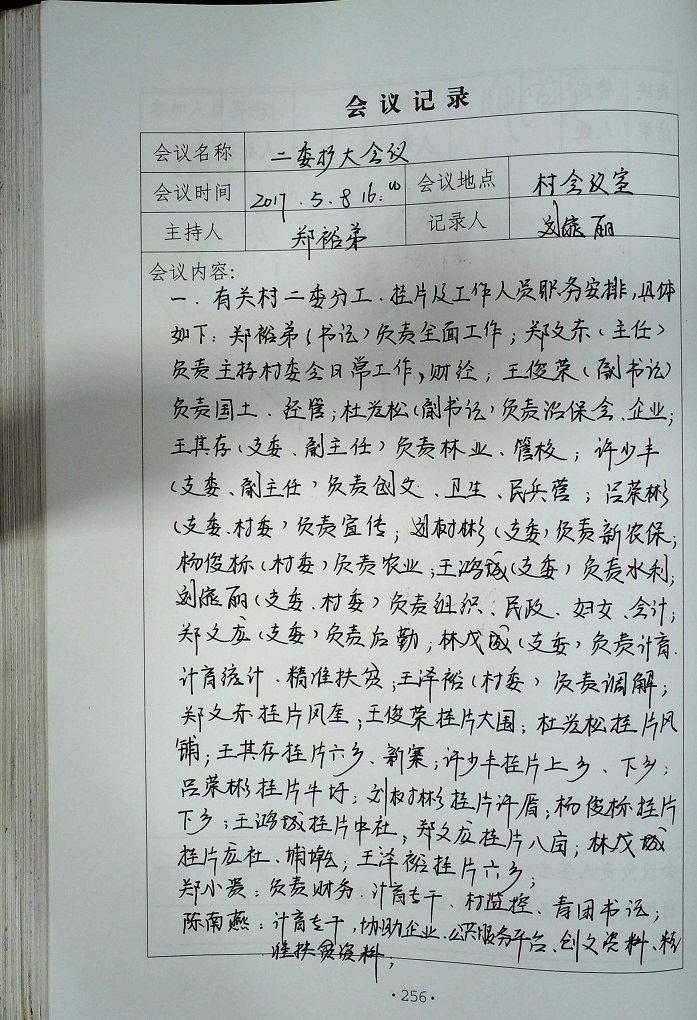 会议记录
会议名称 二委扩大会议
会议时间 2017.5.8 16:00 会议地点 村会议室
主持人 郑裕弟 记录人 刘旋丽
会议内容:
一.有关村二委分工、挂片及工作人员职务安排,具体
如下:郑裕弟(书记)负责全面工作;郑文东(主任)
负责主持村委会日常工作,财经;王俊荣(副书记)
负责国土、经管;杜岱松(副书记)负责治保会、企业;
王其存(支委、副主任)负责林业、管校;许少丰
(支委、副主任)负责创文、卫生、民兵营;吕荣彬
(支委、村委)负责宣传;刘树彬(支委)负责新农保;
杨俊标(村委)负责农业;王鸿城(支委)负责水利;
刘旋丽(支委、村委)负责组织、民政、妇女、会计;
郑文宏(支委)负责后勤;林戊城(支委)负责计育、
计育统计、精准扶贫;王泽裕(村委)负责调解;
郑文东挂片凤奎;王俊荣挂片大围;杜岱松挂片凤
铺;王其存挂片六乡、新寨;许少丰挂片上乡、下乡;
吕荣彬挂片牛圩;刘树彬挂片许厝;杨俊标挂片
下乡;王鸿城挂片中社;郑文宏挂片八亩;林戊城
挂片宏社、埔墘;王泽裕挂片六乡;
郑小=:负责财务、计育专干、村监控、青团书记;
陈南燕:计育专干,协助企业、公共服务平台、创文资料、精
准扶贫资料;
·256·